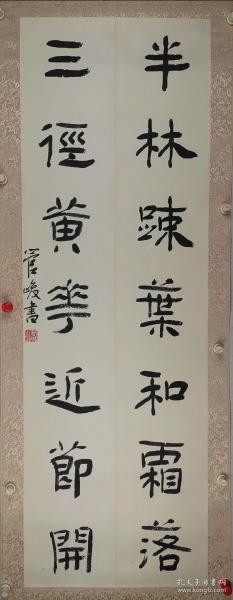 半林踈葉和霜落
三徑黄華近節開
管峻書
孔夫子旧书网
www.kongfz.com